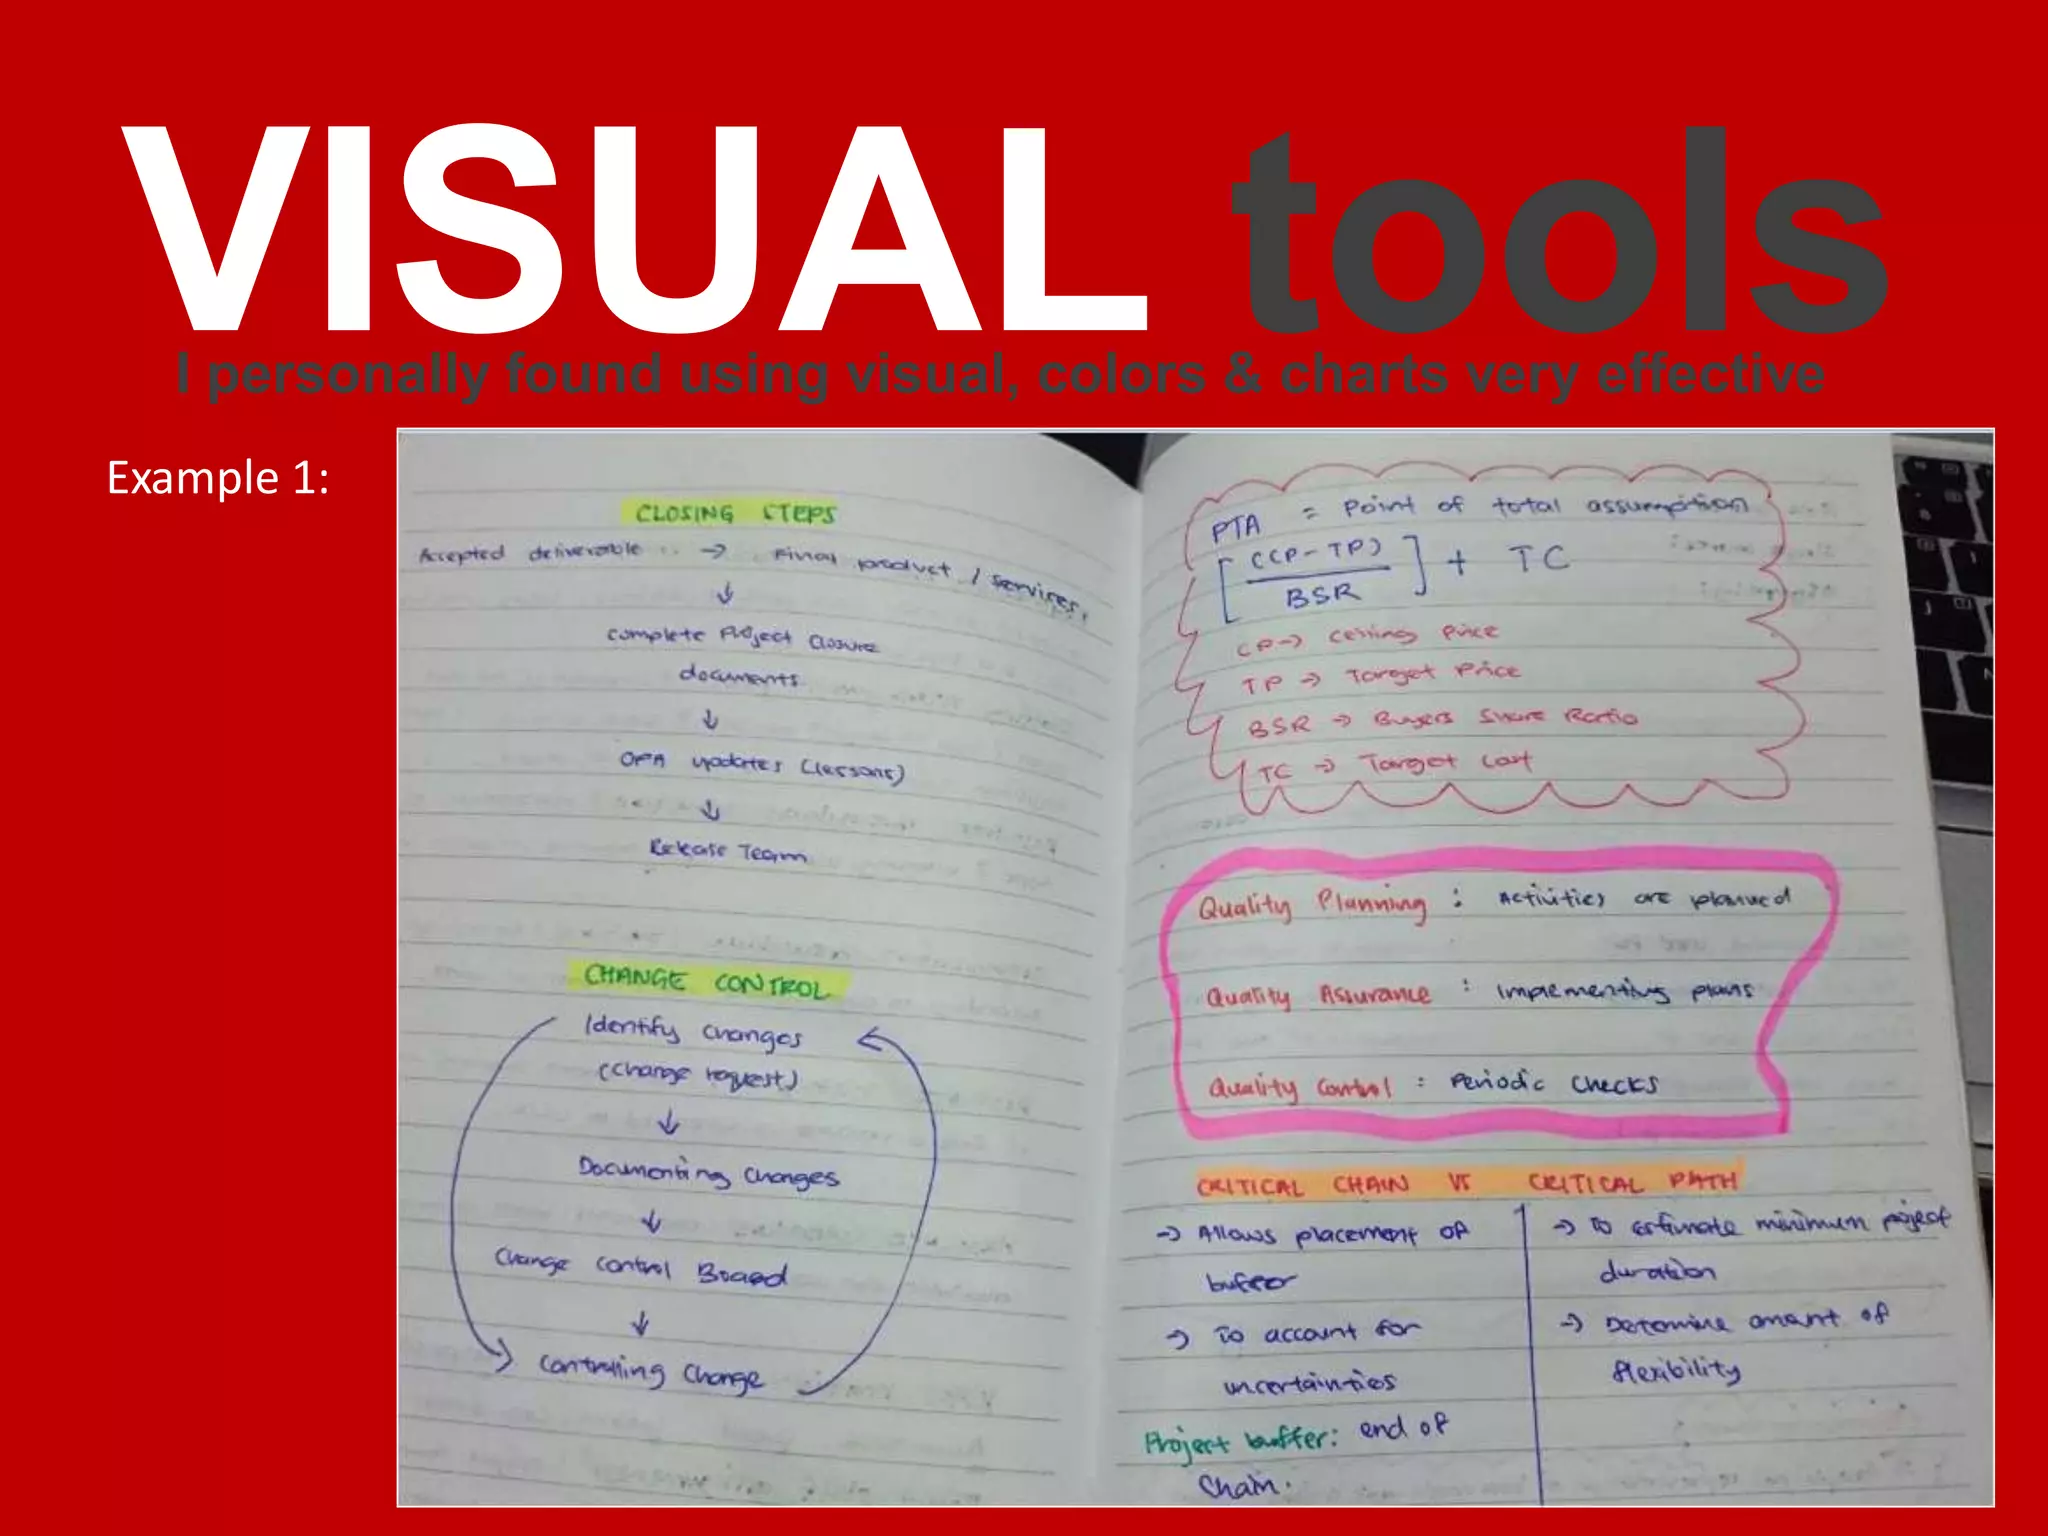 VISUAL tools
I personally found using visual, colors & charts very effective
Example 1:
CLOSING STEPS
Accepted deliverable → Final product / services.
↓
Complete Project Closure
documents
↓
OPA updates (lessons)
↓
Release Team
CHANGE CONTROL
Identify changes
(change request)
↓
Documenting changes
↓
Change control Board
↓
Controlling change
PTA = Point of total assumption
[(CP - TP) / BSR] + TC
CP → Ceiling Price
TP → Target Price
BSR → Buyers Share Ratio
TC → Target Cost
Quality Planning : Activities are planned
Quality Assurance : Implementing plans
Quality Control : Periodic checks
CRITICAL CHAIN VS CRITICAL PATH
→ Allows placement of
buffer
→ To account for
uncertainties
Project buffer: end of
Chain.
→ To estimate minimum project
duration
→ Determine amount of
flexibility